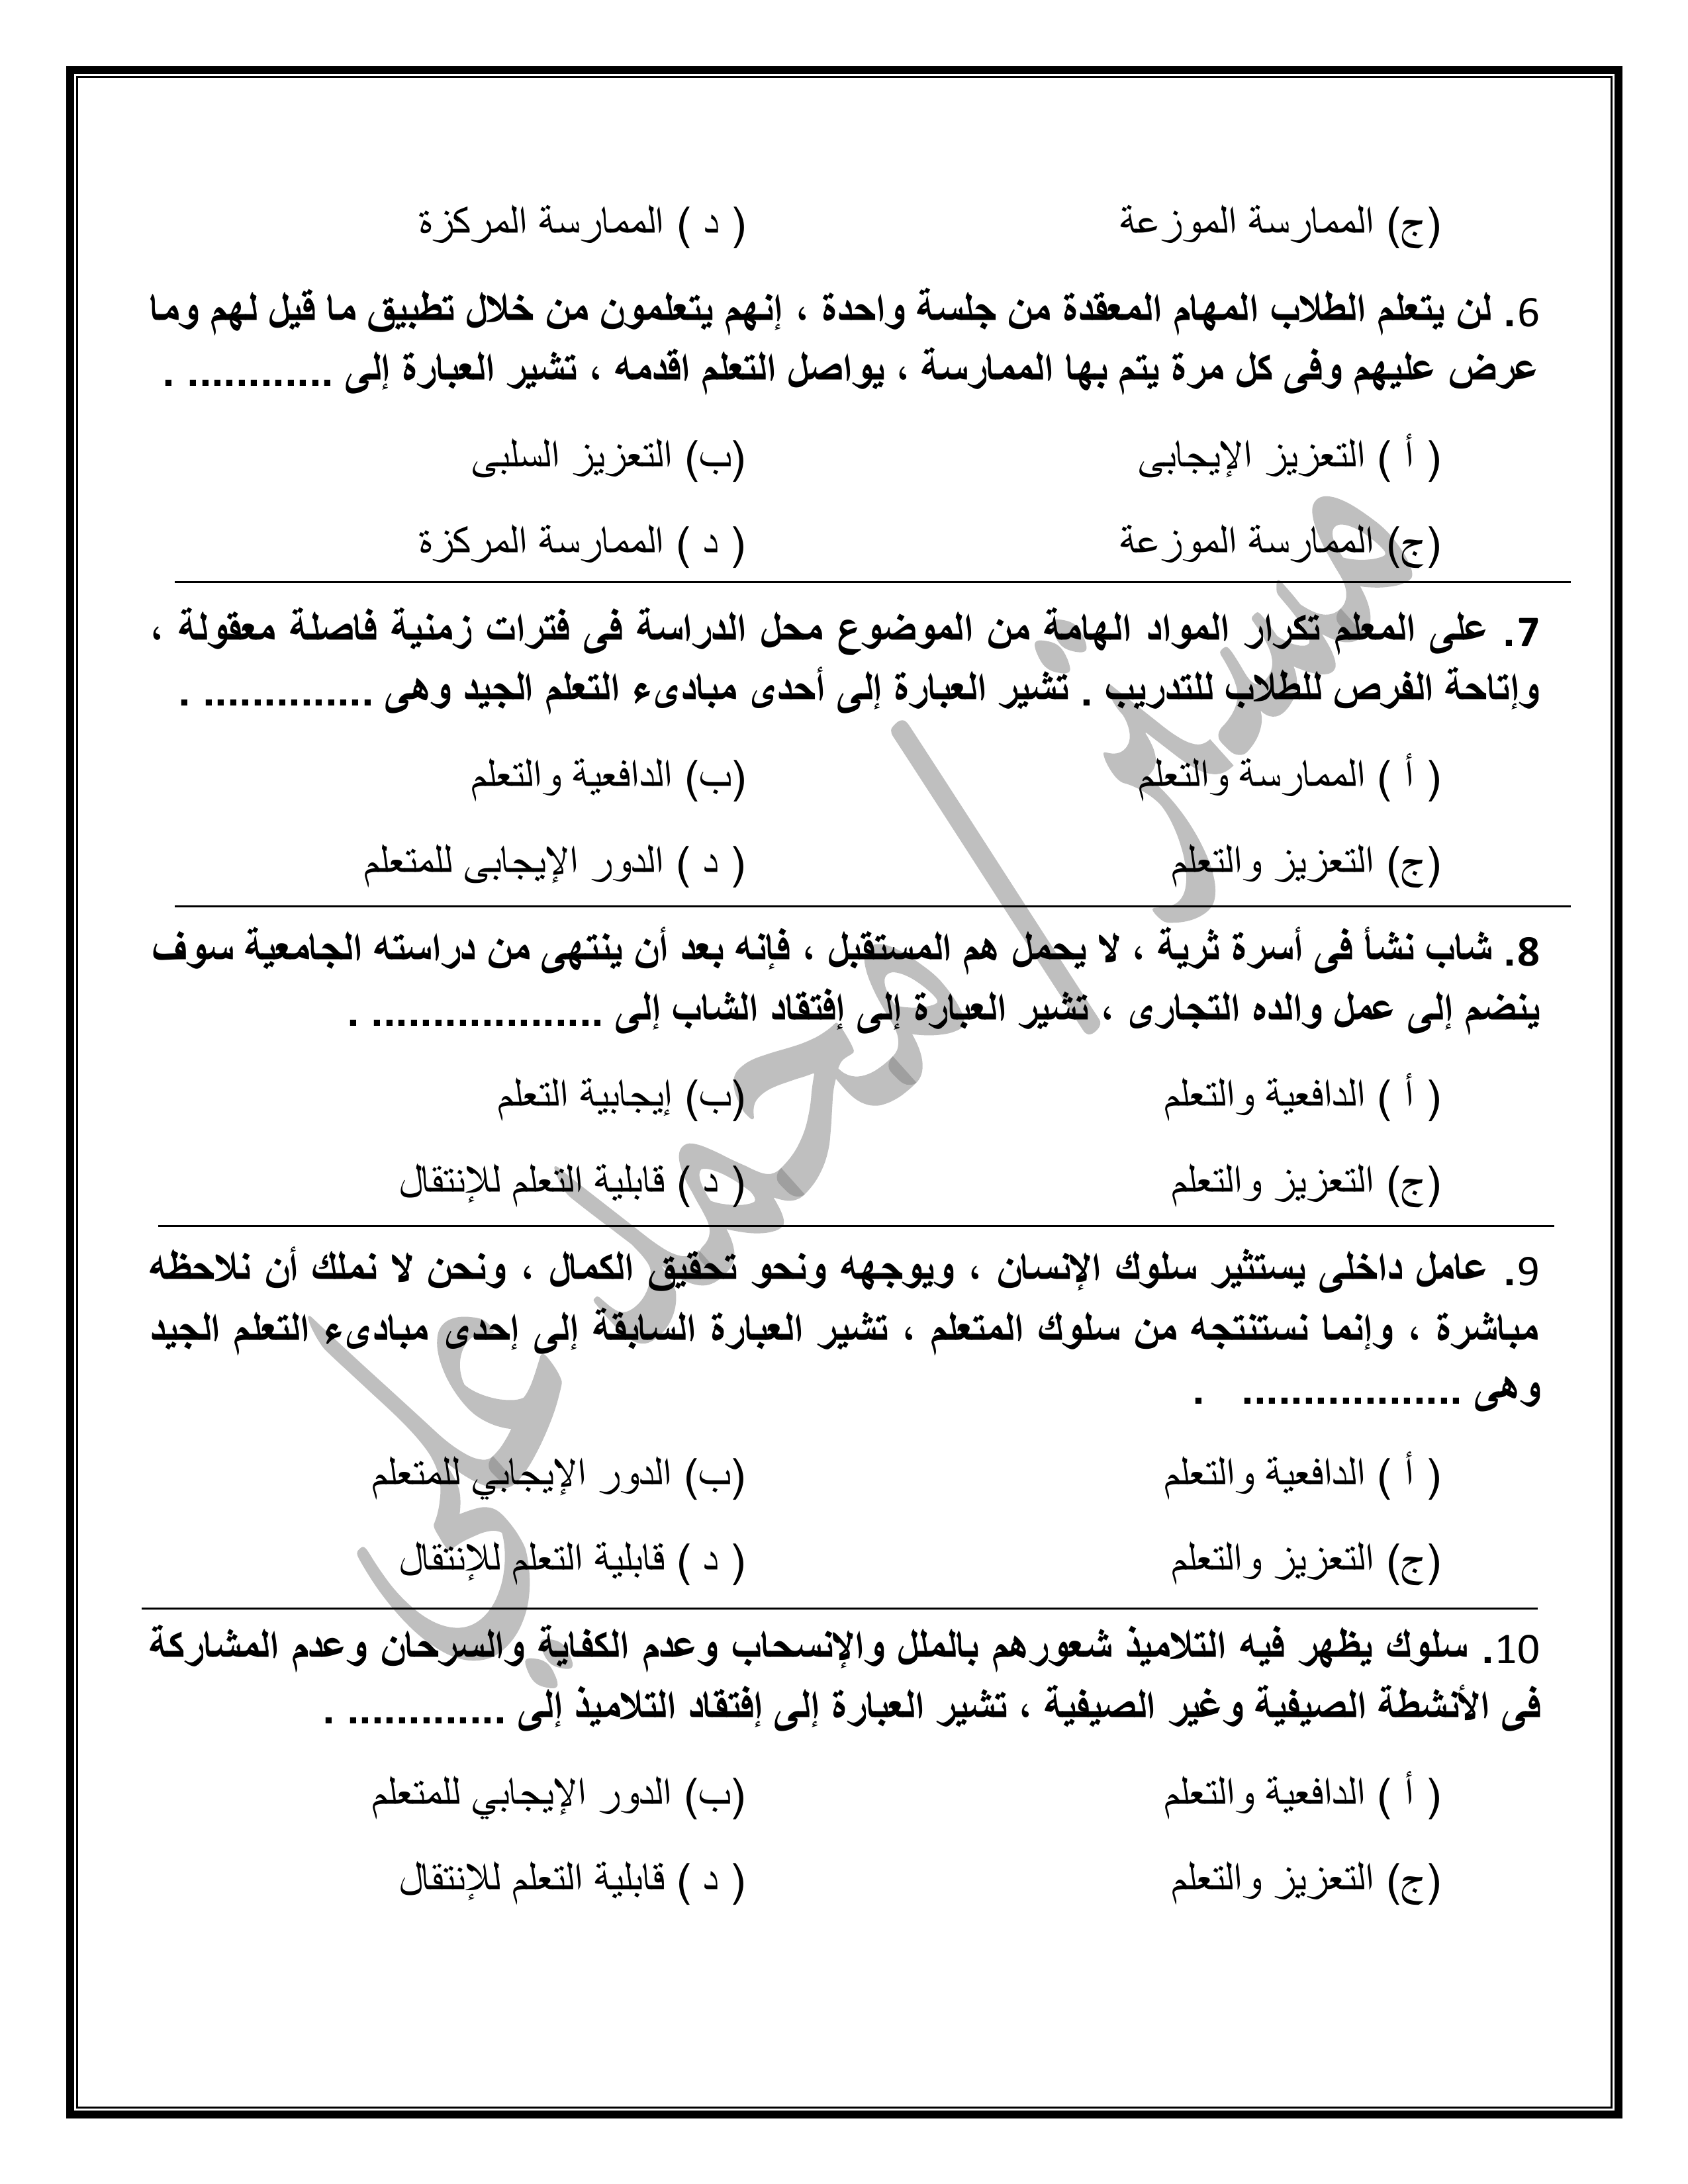 (ج) الممارسة الموزعة ( د ) الممارسة المركزة
6. لن يتعلم الطلاب المهام المعقدة من جلسة واحدة ، إنهم يتعلمون من خلال تطبيق ما قيل لهم وما
عرض عليهم وفى كل مرة يتم بها الممارسة ، يواصل التعلم اقدمه ، تشير العبارة إلى ............ .
( أ ) التعزيز الإيجابى (ب) التعزيز السلبى
(ج) الممارسة الموزعة ( د ) الممارسة المركزة
7. على المعلم تكرار المواد الهامة من الموضوع محل الدراسة فى فترات زمنية فاصلة معقولة ،
وإتاحة الفرص للطلاب للتدريب . تشير العبارة إلى أحدى مبادىء التعلم الجيد وهى .............. .
( أ ) الممارسة والتعلم (ب) الدافعية والتعلم
(ج) التعزيز والتعلم ( د ) الدور الإيجابى للمتعلم
8. شاب نشأ فى أسرة ثرية ، لا يحمل هم المستقبل ، فإنه بعد أن ينتهى من دراسته الجامعية سوف
ينضم إلى عمل والده التجارى ، تشير العبارة إلى إفتقاد الشاب إلى ................... .
( أ ) الدافعية والتعلم (ب) إيجابية التعلم
(ج) التعزيز والتعلم ( د ) قابلية التعلم للإنتقال
9. عامل داخلى يستثير سلوك الإنسان ، ويوجهه ونحو تحقيق الكمال ، ونحن لا نملك أن نلاحظه
مباشرة ، وإنما نستنتجه من سلوك المتعلم ، تشير العبارة السابقة إلى إحدى مبادىء التعلم الجيد
وهى .................. .
( أ ) الدافعية والتعلم (ب) الدور الإيجابي للمتعلم
(ج) التعزيز والتعلم ( د ) قابلية التعلم للإنتقال
10. سلوك يظهر فيه التلاميذ شعورهم بالملل والإنسحاب وعدم الكفاية والسرحان وعدم المشاركة
فى الأنشطة الصيفية وغير الصيفية ، تشير العبارة إلى إفتقاد التلاميذ إلى ............. .
( أ ) الدافعية والتعلم (ب) الدور الإيجابي للمتعلم
(ج) التعزيز والتعلم ( د ) قابلية التعلم للإنتقال
مستر / محمد علي